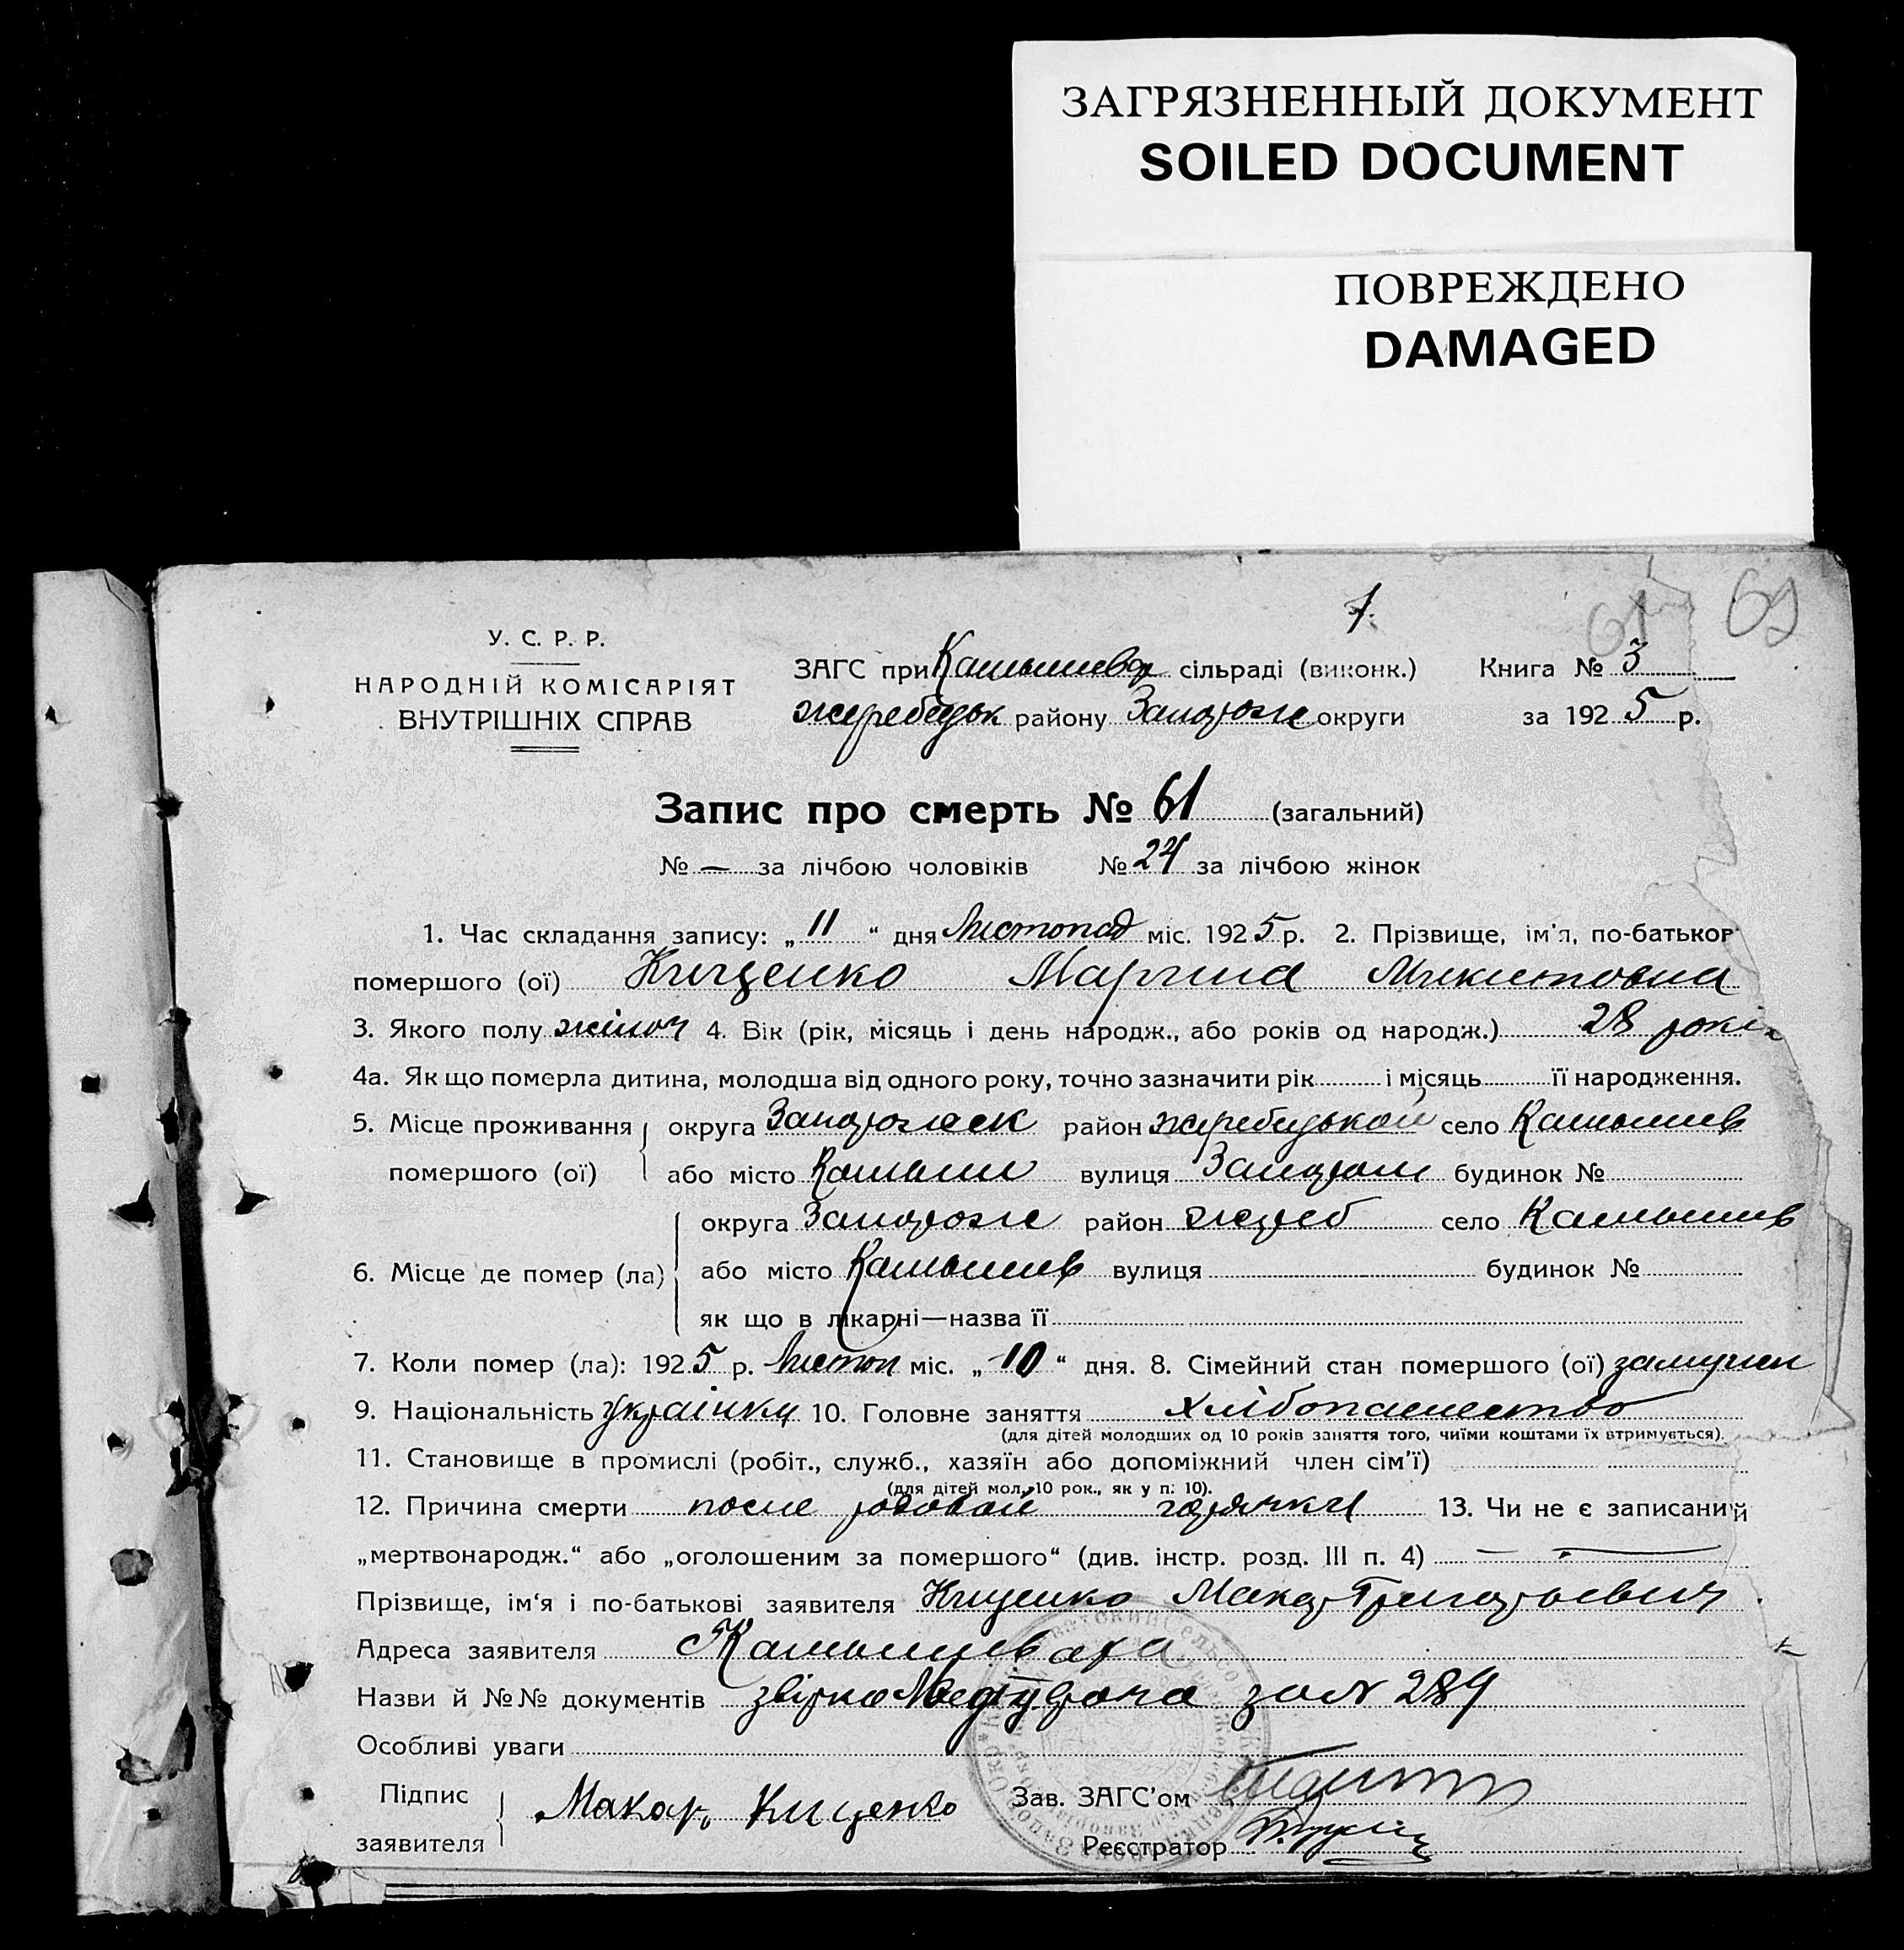 ЗАГРЯЗНЕННЫЙ ДОКУМЕНТ
SOILED DOCUMENT
ПОВРЕЖДЕНО
DAMAGED
61 69
У. С. Р. Р.
НАРОДНІЙ КОМІСАРІЯТ
ВНУТРІШНІХ СПРАВ
ЗАГС при Камышевах сільраді (виконк.) Книга № 3
жеребецьк району Запорож округи за 1925 р.
Запис про смерть № 61 (загальний)
№ — за лічбою чоловіків № 24 за лічбою жінок
1. Час складання запису: „ 11 “ дня Листопад міс. 1925 р. 2. Прізвище, ім'я, по-батьков
помершого (ої) Кищенко Марина Микитовна
3. Якого полу жіноч 4. Вік (рік, місяць і день народж., або років од народж.) 28 років
4а. Як що померла дитина, молодша від одного року, точно зазначити рік і місяць її народження.
5. Місце проживання округа район жеребецькой село Камышев
помершого (ої) або місто Камыш вулиця Запорож будинок №
округа Запорож район жереб село Камышев
6. Місце де помер (ла) або місто Камышев вулиця будинок №
як що в лікарні—назва її
7. Коли помер (ла): 1925 р. Листоп міс. „ 10 “ дня. 8. Сімейний стан помершого (ої) замужем
9. Національність українка 10. Головне заняття хлібопашество
(для дітей молодших од 10 років заняття того, чиїми коштами їх втримується).
11. Становище в промислі (робіт., служб., хазяїн або допоміжний член сім'ї)
(для дітей мол. 10 рок., як у п. 10).
12. Причина смерти после родовой горячки 13. Чи не є записаний
„мертвонародж.“ або „оголошеним за помершого“ (див. інстр. розд. III п. 4) —
Прізвище, ім'я і по-батькові заявителя Кищенко Макар Григорьевич
Адреса заявителя Камышеваха
Назви й №№ документів за № 289
Особливі уваги
Підпис
заявителя Макар Кищенко
Зав. ЗАГС'ом
Реєстратор